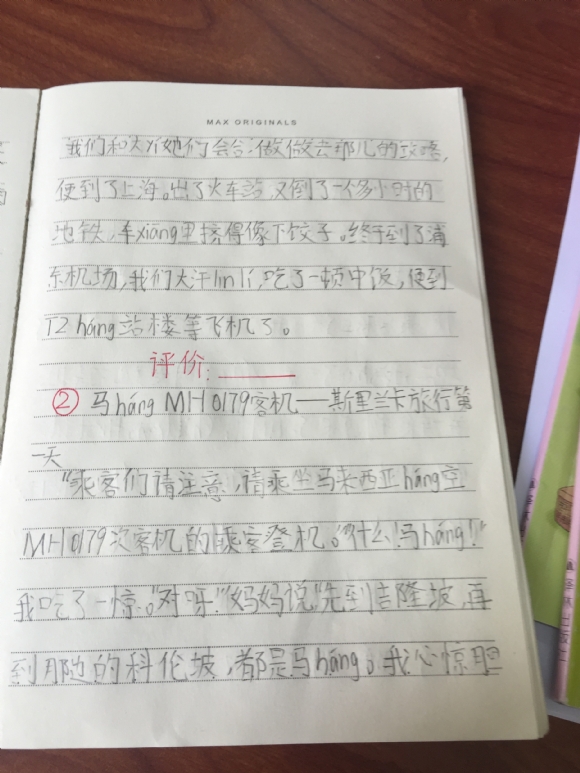 MAX ORIGINALS
我们和大丫她们会合,做做去那儿的攻略,
便到了上海。出了火车站,又倒了一个多小时的
地铁,车xiāng里挤得像下饺子。终于到了浦
东机场,我们大汗lín lí,吃了一顿中饭,便到
T2 háng站楼等飞机了。
评价:
② 马háng MH0179客机——斯里兰卡旅行第
一天
“乘客们请注意,请乘坐马来西亚háng空
MH0179次客机的乘客登机。”“什么!马háng!”
我吃了一惊。“对呀!”妈妈说“先到吉隆坡,再
到那边的科伦坡,都是马háng。我心惊胆